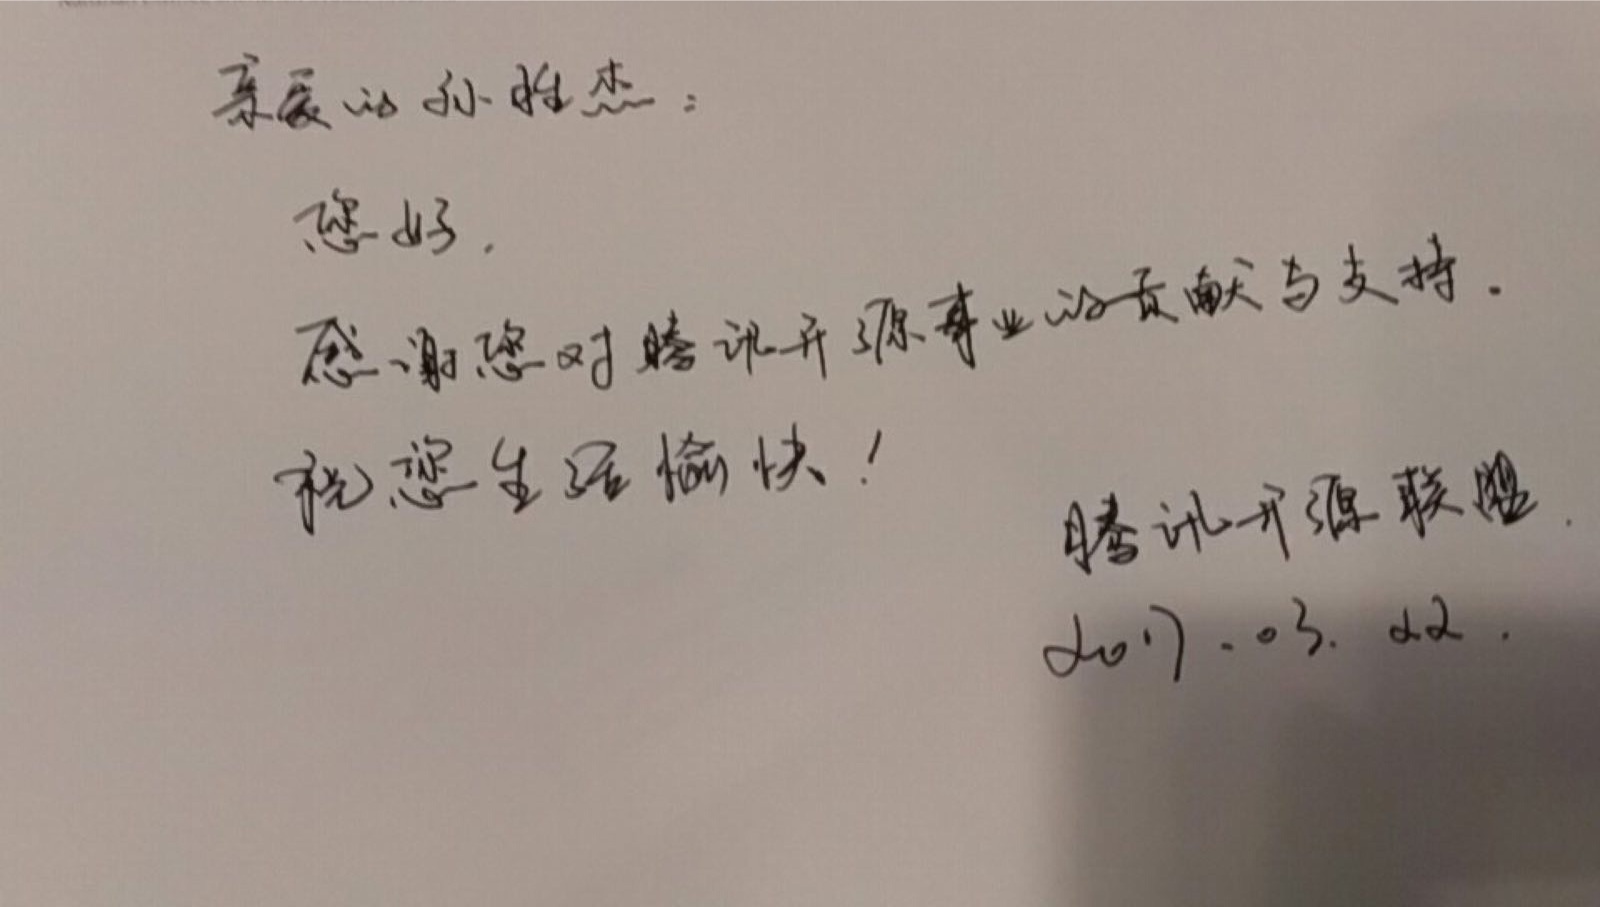 亲爱的孙胜杰:
您好.
感谢您对腾讯开源事业的贡献与支持.
祝您生活愉快!
腾讯开源联盟.
2017.03.22.